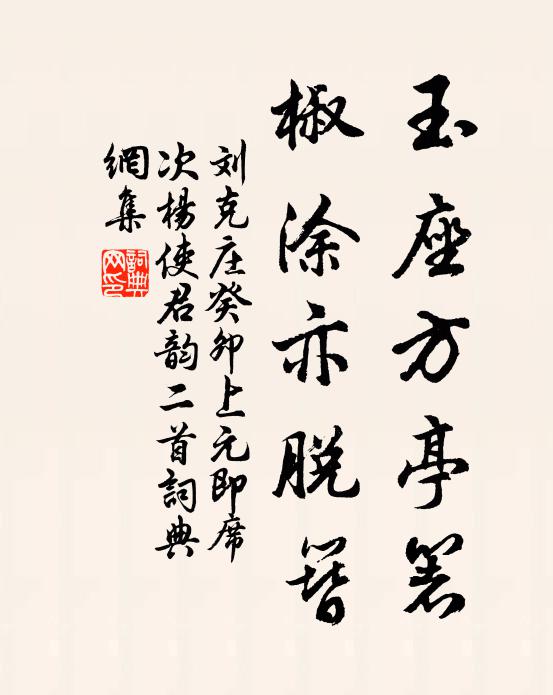 玉座方亭箸
椒涂亦脱簪
刘克庄癸卯上元即席
次楊使君韵二首詞典
網集
詞典
网印